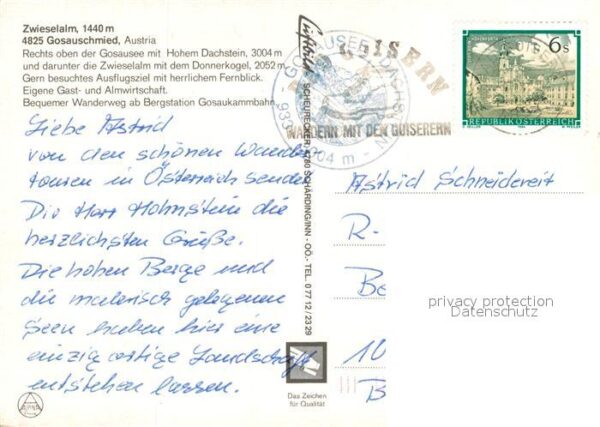 Zwieselalm, 1440 m
4825 Gosauschmied, Austria
Rechts oben der Gosausee mit Hohem Dachstein, 3004 m
und darunter die Zwieselalm mit dem Donnerkogel, 2052 m.
Gern besuchtes Ausflugsziel mit herrlichem Fernblick.
Eigene Gast- und Almwirtschaft.
Bequemer Wanderweg ab Bergstation Gosaukammbahn.
Liebe Astrid
von den schönen Wander
touren in Österreich sendet
Dir Harr Holmstein die
herzlichsten Grüße.
Die hohen Berge und
die malerisch gelegenen
Seen haben hier eine
einzig artige Landschaft
entstehen lassen.
SCHEHRECKER, 4780 SCHÄRDING/INN - OÖ. - TEL. 0 77 12 / 23 29
Das Zeichen
für Qualität
GOISERN
WANDERN MIT DEN GOISERERN
6s
REPUBLIK ÖSTERREICH
Astrid Schneidereit
R-
Be
10
B
privacy protection
Datenschutz